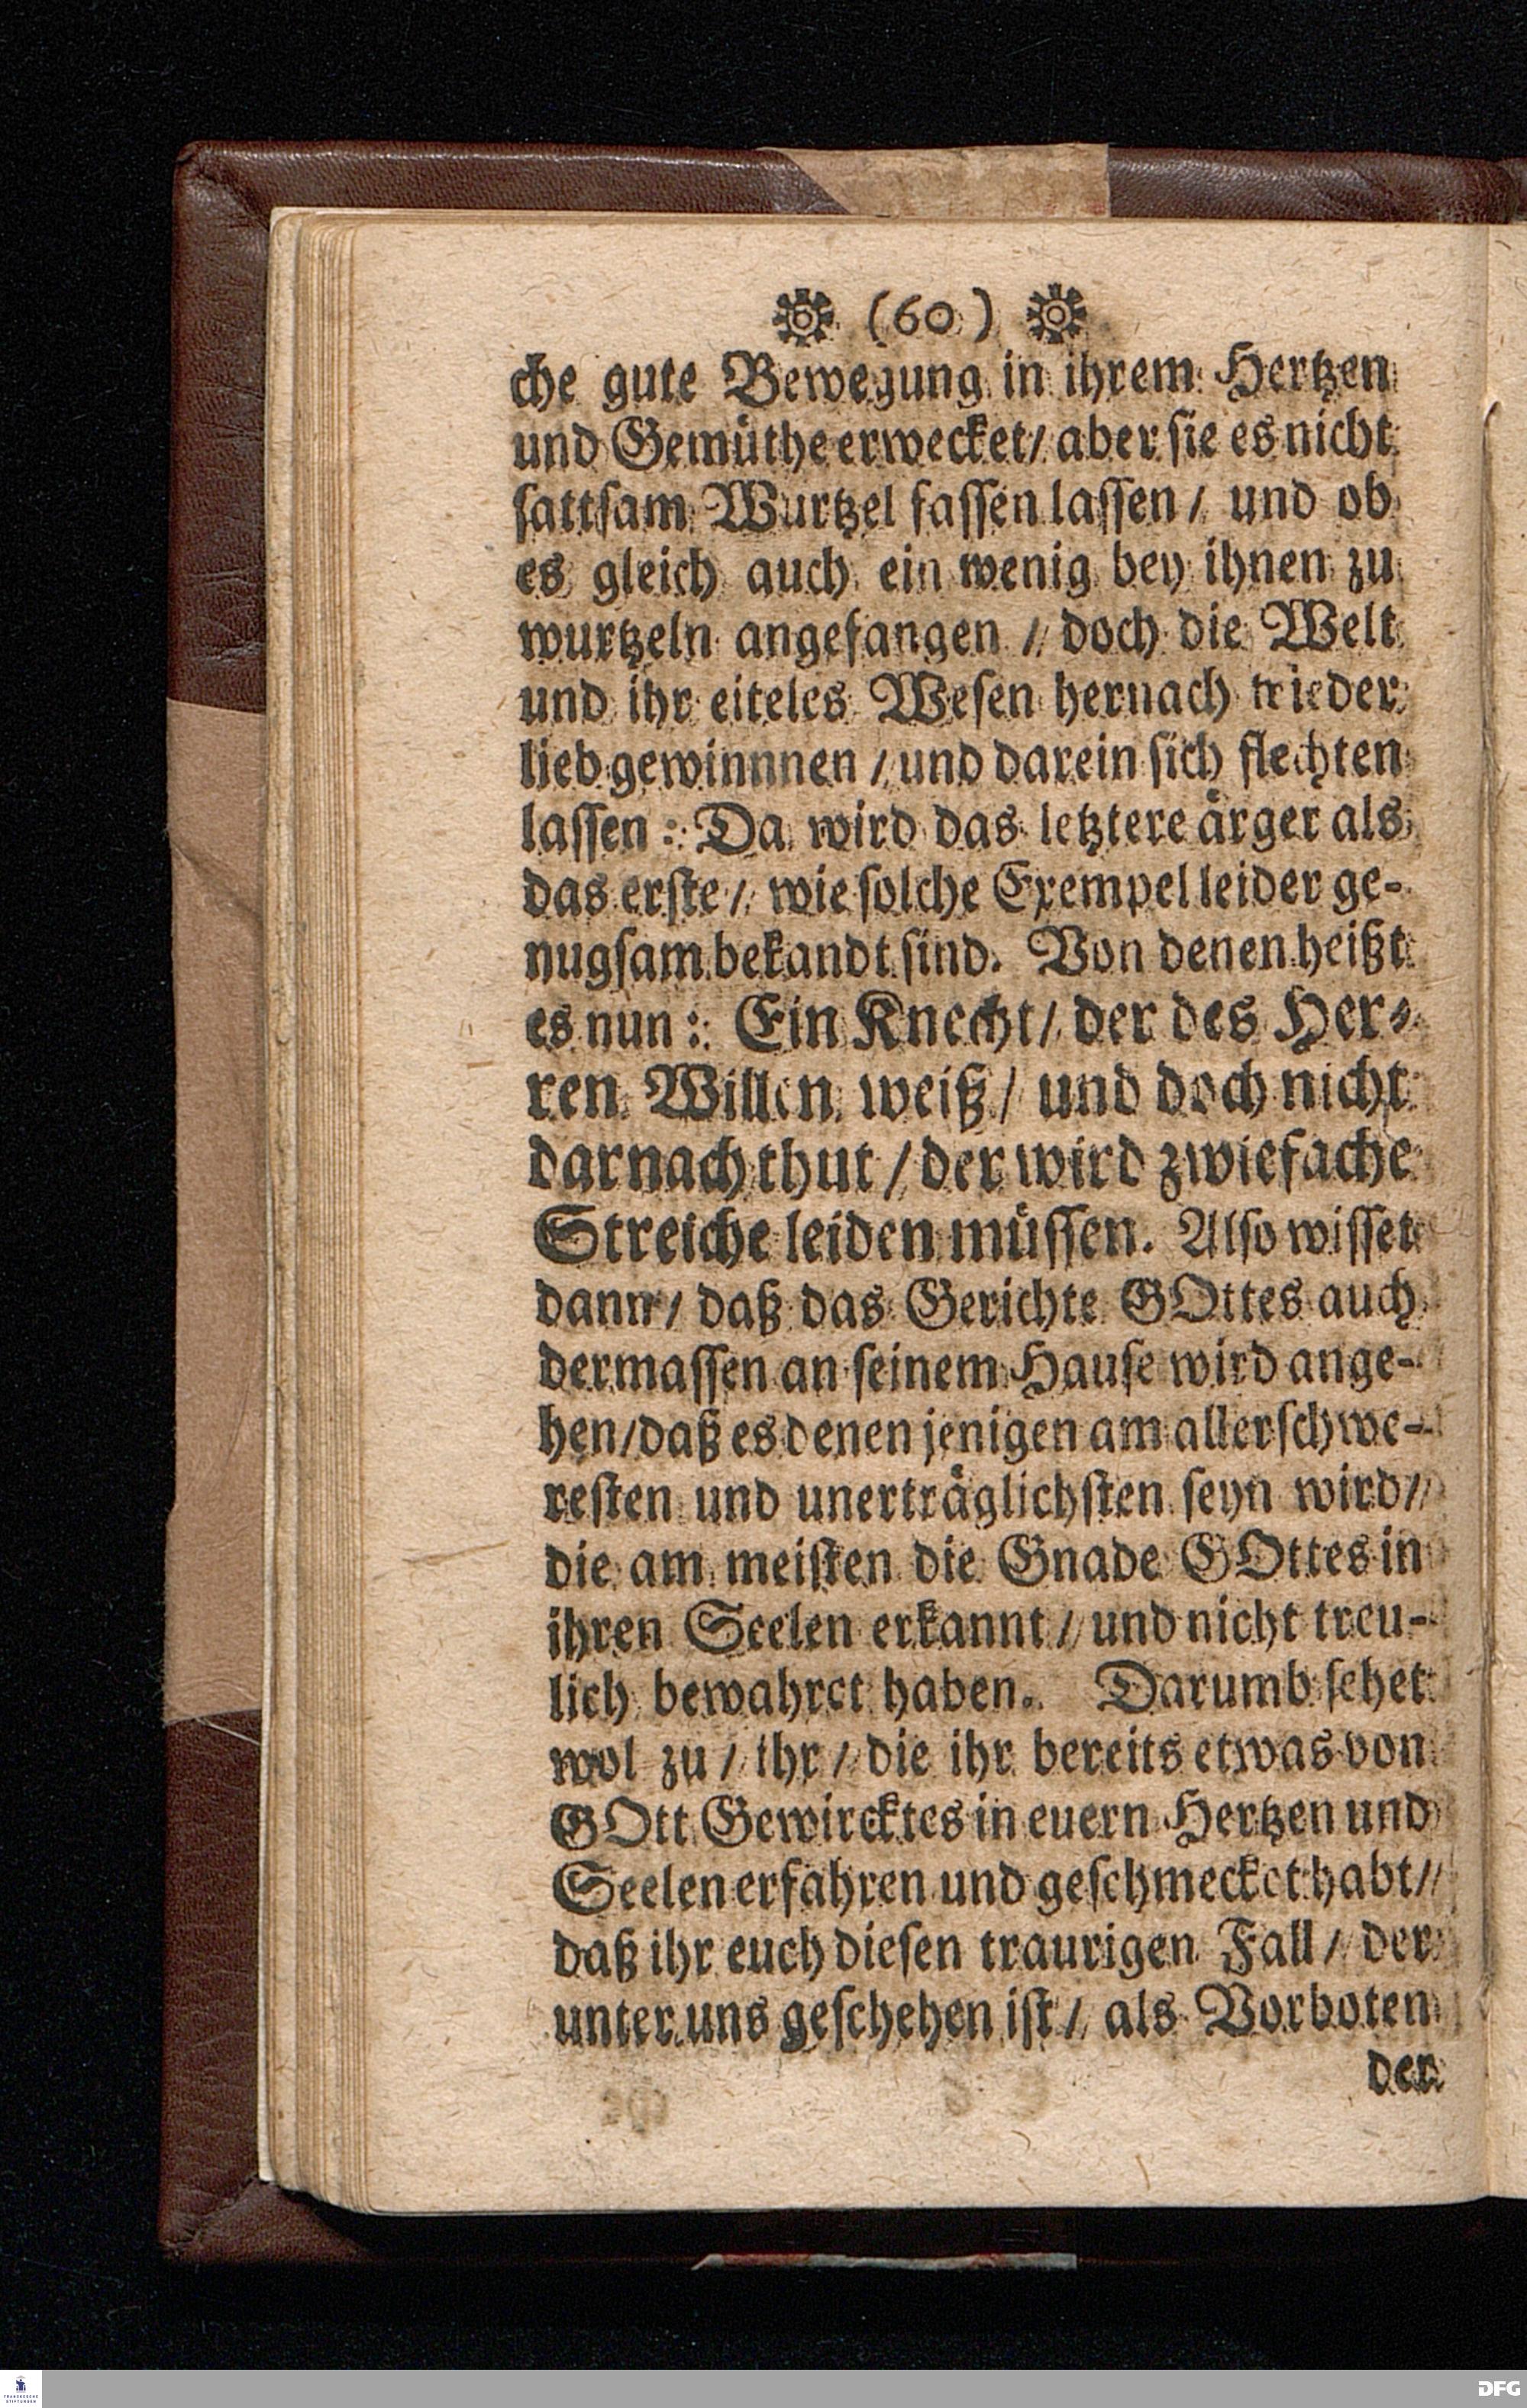 (60)
che gute Bewegung in ihrem Hertzen
und Gemüthe erwecket / aber sie es nicht
sattsam Wurtzel fassen lassen / und ob
es gleich auch ein wenig bey ihnen zu
wurtzeln angefangen / doch die Welt
und ihr eiteles Wesen hernach wieder
lieb gewinnnen / und darein sich flechten
lassen: Da wird das letztere ärger als
das erste / wie solche Exempel leider ge-
nugsam bekandt sind. Von denen heißt
es nun: Ein Knecht / der des Her-
ren Willen weiß / und doch nicht
darnach thut / der wird zwiefache
Streiche leiden müssen. Also wisset
dann / daß das Gerichte GOttes auch
dermassen an seinem Hause wird ange-
hen / daß es denen jenigen am allerschwe-
resten und unerträglichsten seyn wird /
die am meisten die Gnade GOttes in
ihren Seelen erkannt / und nicht treu-
lich bewahret haben. Darumb sehet
wol zu / ihr / die ihr bereits etwas von
GOtt Gewircktes in euern Hertzen und
Seelen erfahren und geschmecket habt /
daß ihr euch diesen traurigen Fall / der
unter uns geschehen ist / als Vorboten
der
FRANCKESCHE
STIFTUNGEN
DFG